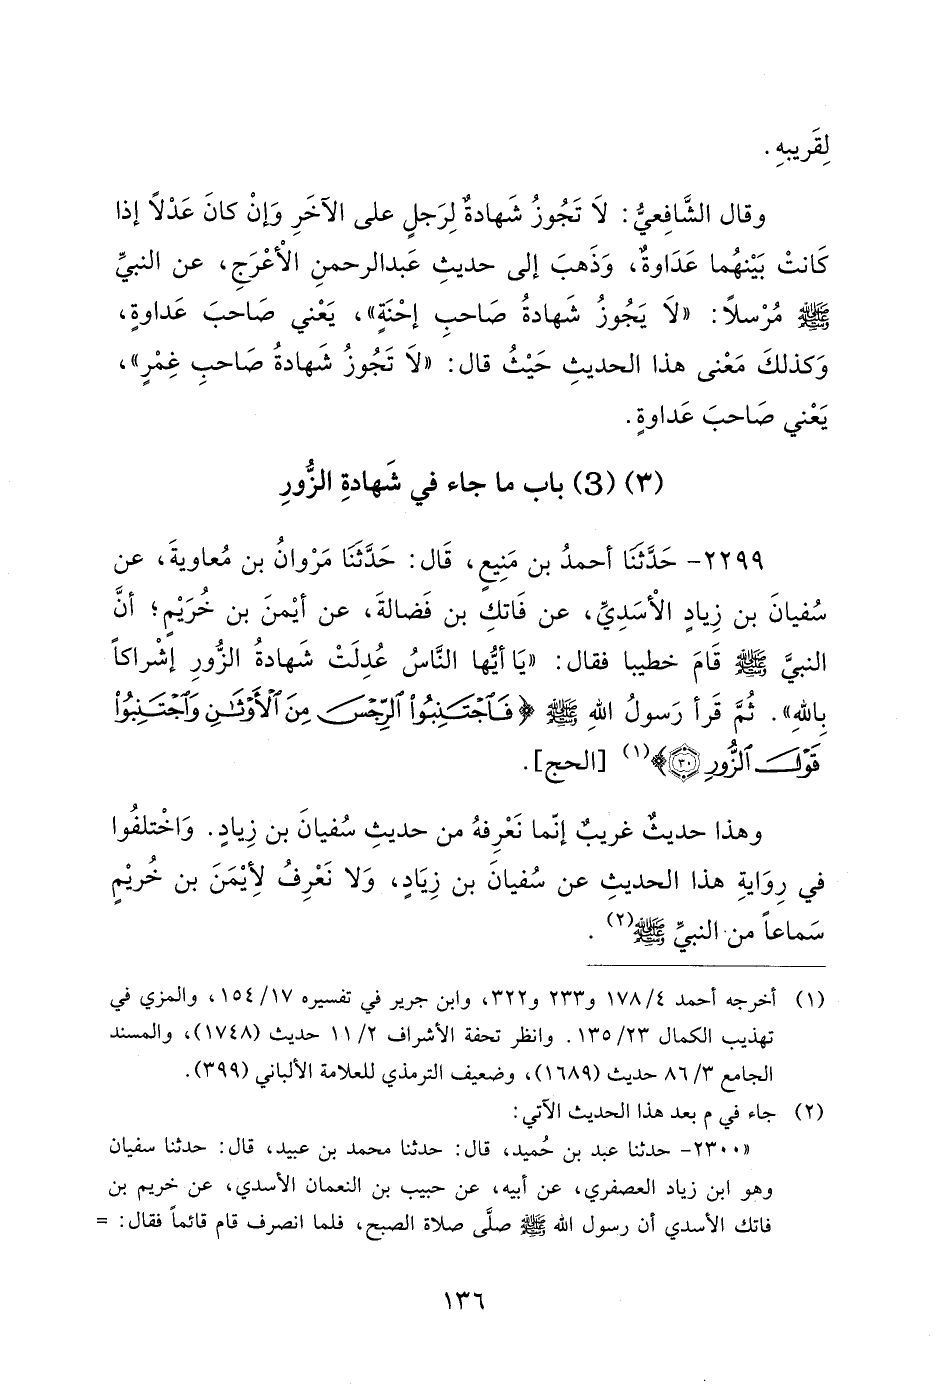 لِقَريبهِ .
وقال الشَّافِعيُّ : لاَ تَجُوزُ شَهادةٌ لِرَجلٍ على الآخَرِ وَإنْ كانَ عَدْلاً إذا
كَانتْ بَيْنهُما عَدَاوةٌ، وَذَهبَ إلى حديثِ عَبدالرحمنِ الأعْرَجِ، عن النبيِّ
ﷺ مُرْسلاً : «لاَ يَجُوزُ شَهادةُ صَاحبِ إحْنَةٍ»، يَعْني صَاحبَ عَداوةٍ،
وَكذلكَ مَعْنى هذا الحديثِ حَيْثُ قال : «لاَ تَجُوزُ شَهادةُ صَاحبِ غِمْرٍ»،
يَعْني صَاحبَ عَداوةٍ .
(٣) (3) باب ما جاء في شَهادةِ الزُّورِ
٢٢٩٩- حَدَّثَنَا أحمدُ بن مَنِيعٍ، قَال : حَدَّثَنَا مَرْوانُ بن مُعاويةَ، عن
سُفيانَ بن زِيادٍ الأسَديِّ، عن فَاتكِ بن فَضالةَ، عن أيْمنَ بن خُرَيْمٍ؛ أنَّ
النبيَّ ﷺ قَامَ خطيبا فقال : «يَا أيُّها النَّاسُ عُدِلَتْ شَهادةُ الزُّورِ إشْراكاً
بِاللهِ». ثُمَّ قَرأ رَسولُ اللهِ ﷺ ﴿فَٱجْتَنِبُوا۟ ٱلرِّجْسَ مِنَ ٱلْأَوْثَٰنِ وَٱجْتَنِبُوا۟
قَوْلَ ٱلزُّورِ ٣٠﴾(١) [الحج].
وهذا حديثٌ غريبٌ إنّما نَعْرِفهُ من حديثِ سُفيانَ بن زِيادٍ. وَاخْتلفُوا
في رِوَايةِ هذا الحديثِ عن سُفيانَ بن زِيَادٍ، وَلا نَعْرِفُ لِأيْمَنَ بن خُريْمٍ
سَماعاً من النبيِّ ﷺ(٢) .
(١) أخرجه أحمد ٤/ ١٧٨ و٢٣٣ و٣٢٢، وابن جرير في تفسيره ١٧/ ١٥٤، والمزي في
تهذيب الكمال ٢٣/ ١٣٥. وانظر تحفة الأشراف ٢/ ١١ حديث (١٧٤٨)، والمسند
الجامع ٣/ ٨٦ حديث (١٦٨٩)، وضعيف الترمذي للعلامة الألباني (٣٩٩).
(٢) جاء في م بعد هذا الحديث الآتي :
«٢٣٠٠- حدثنا عبد بن حُميد، قال : حدثنا محمد بن عبيد، قال : حدثنا سفيان
وهو ابن زياد العصفري، عن أبيه، عن حبيب بن النعمان الأسدي، عن خريم بن
فاتك الأسدي أن رسول الله ﷺ صلَّى صلاة الصبح، فلما انصرف قام قائماً فقال : =
١٣٦